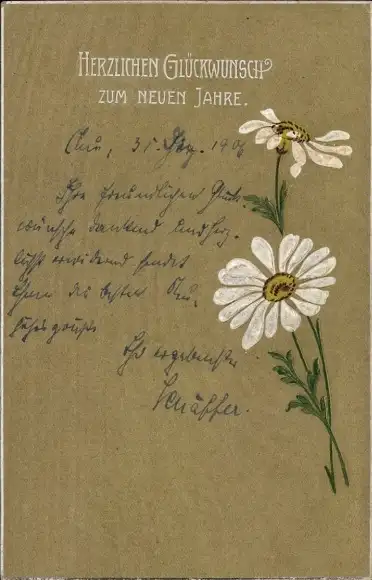 HERZLICHEN GLÜCKWUNSCH
ZUM NEUEN JAHRE.
Au, 31. Dez. 1906
Ihre freundlichen Glück-
wünsche dankend und herz-
lichst erwidernd sendet
Ihnen die besten Neu-
jahrsgrüße
Ihr ergebenster
Schäffer.